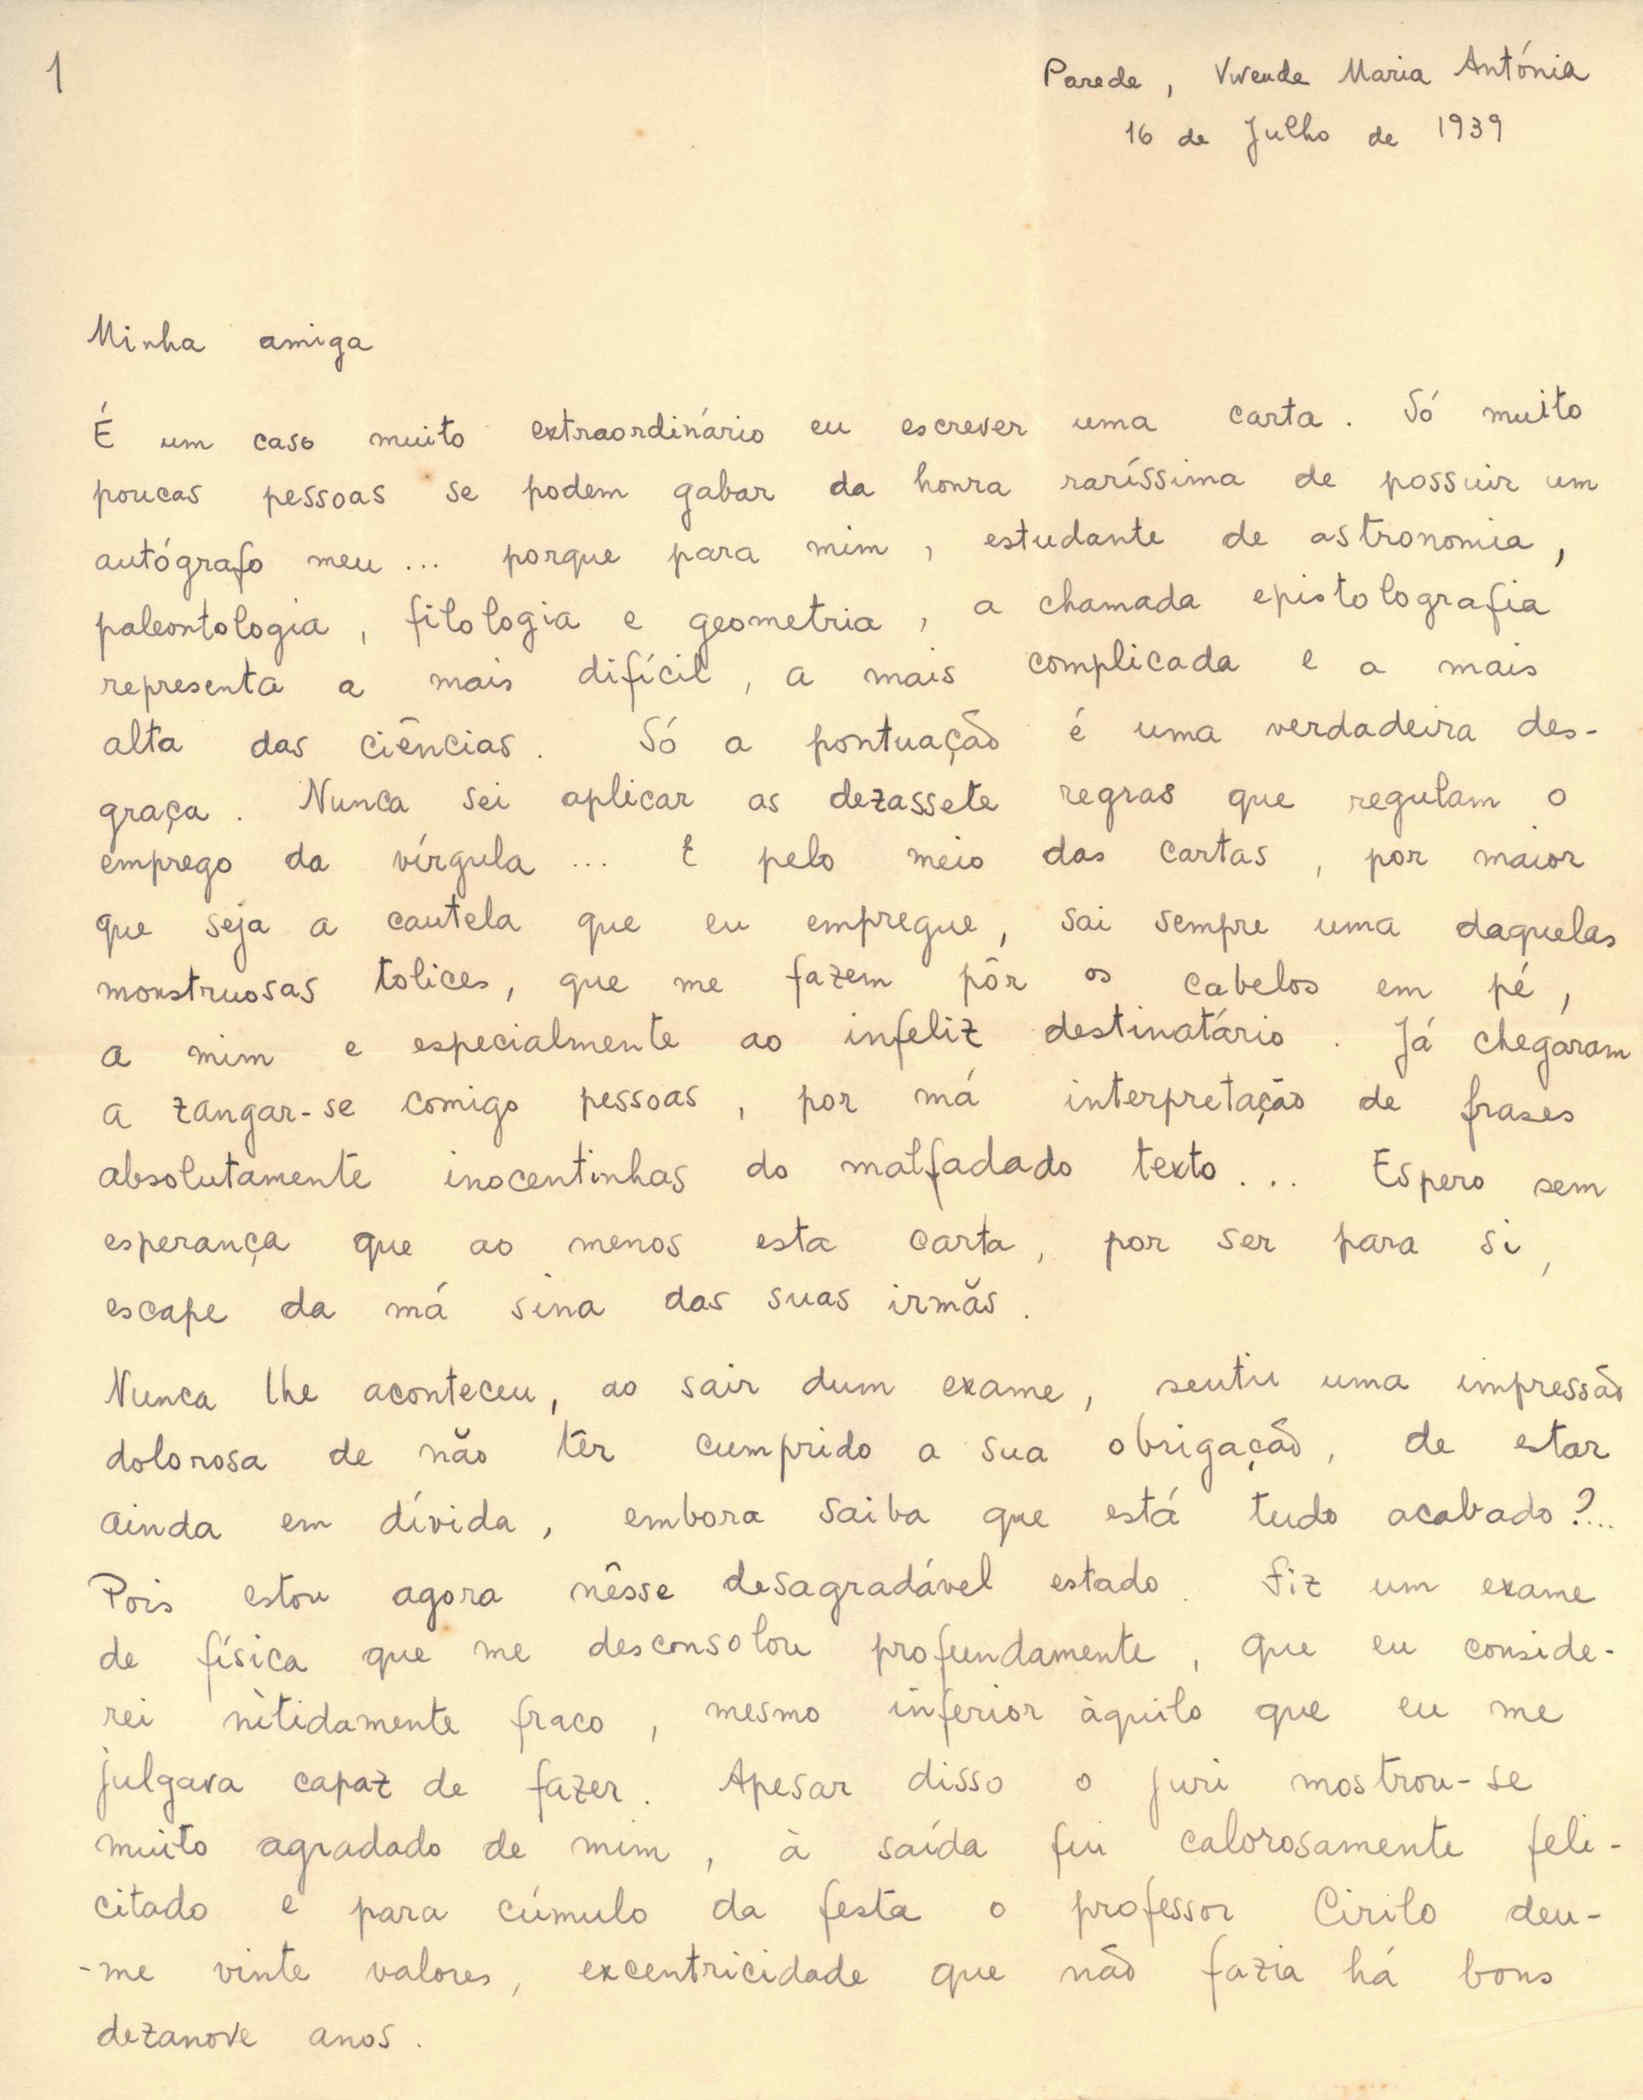 1
Parede, Vivenda Maria Antónia
16 de Julho de 1939
Minha amiga
É um caso muito extraordinário eu escrever uma carta. Só muito
poucas pessoas se podem gabar da honra raríssima de possuir um
autógrafo meu... porque para mim, estudante de astronomia,
paleontologia, filologia e geometria, a chamada epistolografia
representa a mais difícil, a mais complicada e a mais
alta das ciências. Só a pontuação é uma verdadeira des-
graça. Nunca sei aplicar as dezassete regras que regulam o
emprego da vírgula... E pelo meio das cartas, por maior
que seja a cautela que eu empregue, sai sempre uma daquelas
monstruosas tolices, que me fazem pôr os cabelos em pé,
a mim e especialmente ao infeliz destinatário. Já chegaram
a zangar-se comigo pessoas, por má interpretação de frases
absolutamente inocentinhas do malfadado texto... Espero sem
esperança que ao menos esta carta, por ser para si,
escape da má sina das suas irmãs.
Nunca lhe aconteceu, ao sair dum exame, sentir uma impressão
dolorosa de não têr cumprido a sua obrigação, de estar
ainda em dívida, embora saiba que está tudo acabado?...
Pois estou agora nêsse desagradável estado. Fiz um exame
de física que me desconsolou profundamente, que eu conside-
rei nìtidamente fraco, mesmo inferior àquilo que eu me
julgava capaz de fazer. Apesar disso o juri mostrou-se
muito agradado de mim, à saída fui calorosamente feli-
citado e para cúmulo da festa o professor Cirilo deu-
-me vinte valores, excentricidade que não fazia há bons
dezanove anos.